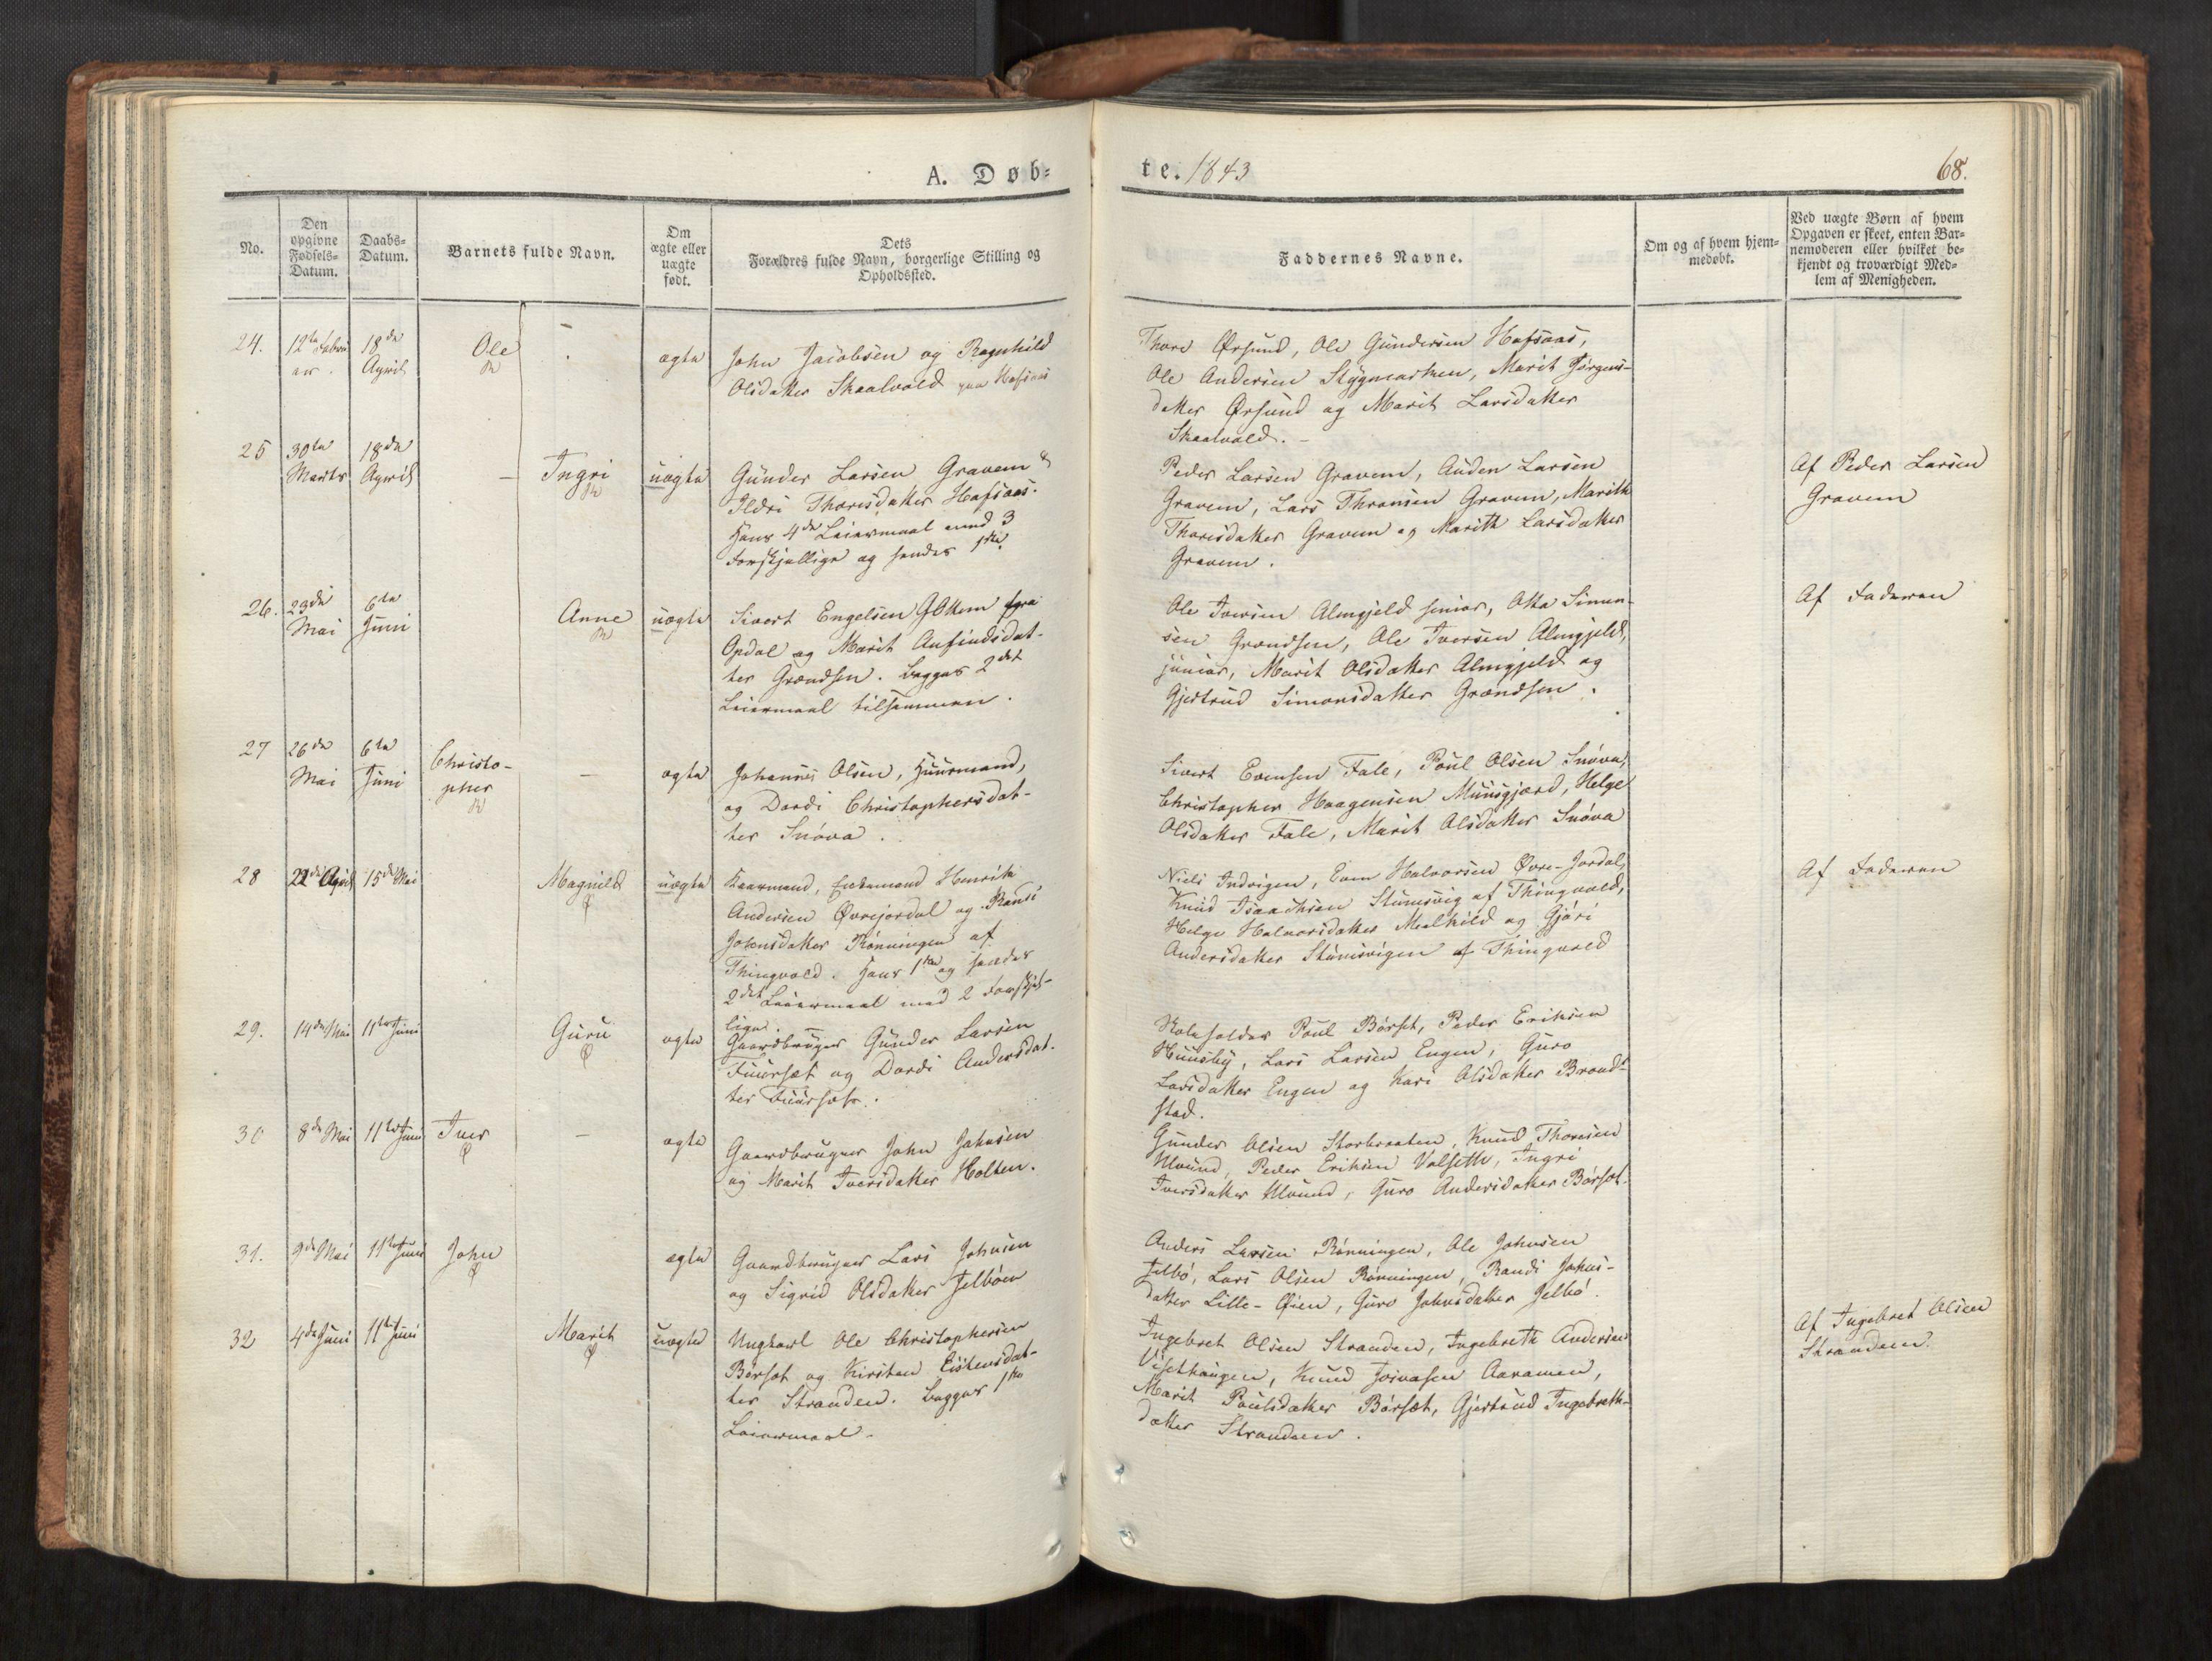 A. Døb=
te. 1843
68.
No.
Den opgivne Fødsels=Datum.
Daabs=Datum.
Barnets fulde Navn.
Om ægte eller uægte født.
Dets
Forældres fulde Navn, borgerlige Stilling og
Opholdssted.
Faddernes Navne.
Om og af hvem hjem=
medøbt.
Ved uægte Børn af hvem
Opgaven er skeet, enten Bar=
nemoderen eller hvilket be=
kjendt og troværdigt Med=
lem af Menigheden.
24. 12te Febru
ar. 18de
April Ole ægte
John Jacobsen og Ragnhild
Olsdatter Skaalvold paa Hafsaas
Thore Ørsund, Ole Gundersen Hafsaas,
Ole Andersen Stygmarken, Marit Jørgens-
datter Ørsund og Marit Larsdatter
Skaalvold. -
25 30te
Marts 18de
April - Ingri uægte
Gunder Larsen Gravem &
Ildri Thoresdatter Hafsaas.
Hans 4de Leiermaal med 3
forskjellige og hendes 1ste.
Peder Larsen Gravem, Auden Larsen
Gravem, Lars Thronsen Gravem, Marith
Thoresdatter Gravem og Marith Larsdatter
Gravem.
Af Peder Larsen
Gravem
26. 23de
Mai 6te
Juni Anne uægte
Sivert Engelsen fra
Opdal og Marit Anfindsdat-
ter Grændsen. Begges 2det
Leiermaal tilsammen.
Ole Iversen Almgjeld senior, Otto Simon-
sen Grændsen, Ole Iversen Almgjeld,
junior, Marit Olsdatter Almgjeld og
Gjertrud Simonsdatter Grændsen.
Af Faderen
27 26de
Mai 6te
Juni Christo-
pher - ægte
Johannes Olsen, Huusmand,
og Dordi Christophersdat-
ter Snøva.
Sivert Evensen Fale, Poul Olsen Snøva,
Christopher Haagensen Muusgjærd, Helge
Olsdatter Fale, Marit Olsdatter Snøva
28 22de April 15de Mai Magnild uægte
Enkemand Henrik
Andersen Øvrejordal og Randi
Johnsdatter Rønningen af
Thingvold. Hans 1ste og hendes
2det Leiermaal med 2 forskjel-
lige.
Niels Indvigen, Even Halvorsen Øvre-Jordal,
Knud Isaachsen Stumsvig af Thingvold,
Helge Halvorsdatter Mælhild og Gjøri
Andersdatter Stumsvigen af Thingvold
Af Faderen
29. 14de Mai 11te Juni Guru ægte
Gaardbruger Gunder Larsen
Fuursæt og Dordi Andersdat-
ter Fuursæt.
Skoleholder Poul Børset, Peder Eriksen
Huusby, Lars Larsen Engen, Guro
Larsdatter Engen og Kari Olsdatter Brand-
stad.
30 8de Mai 11te Juni Iver - ægte
Gaardbruger John Johnsen
og Marit Iversdatter Holten.
Gunder Olsen Storbraaten, Knud Thoresen
Ulvund, Peder Eriksen Valseth, Ingri
Iversdatter Ulvund, Guro Andersdatter Børset.
31. 9de Mai 11te Juni John ægte
Gaardbruger Lars Johnsen
og Sigrid Olsdatter Jelbøen
Anders Larsen Rønningen, Ole Johnsen
Jelbø, Lars Olsen Rønningen, Randi Johns-
datter Lille-Øien, Guro Johnsdatter Jelbø.
32 4de Juni 11te Juni Marit uægte
Ungkarl Ole Christophersen
Børset og Kirsten Eistensdat-
ter Stranden. Begges 1ste
Leiermaal.
Ingebret Olsen Stranden, Ingebreth Andersen
Viisethaugen, Knud Aaramen,
Marit Poulsdatter Børset, Gjertrud Ingebreth-
datter Stranden.
Af Ingebret Olsen
Stranden.